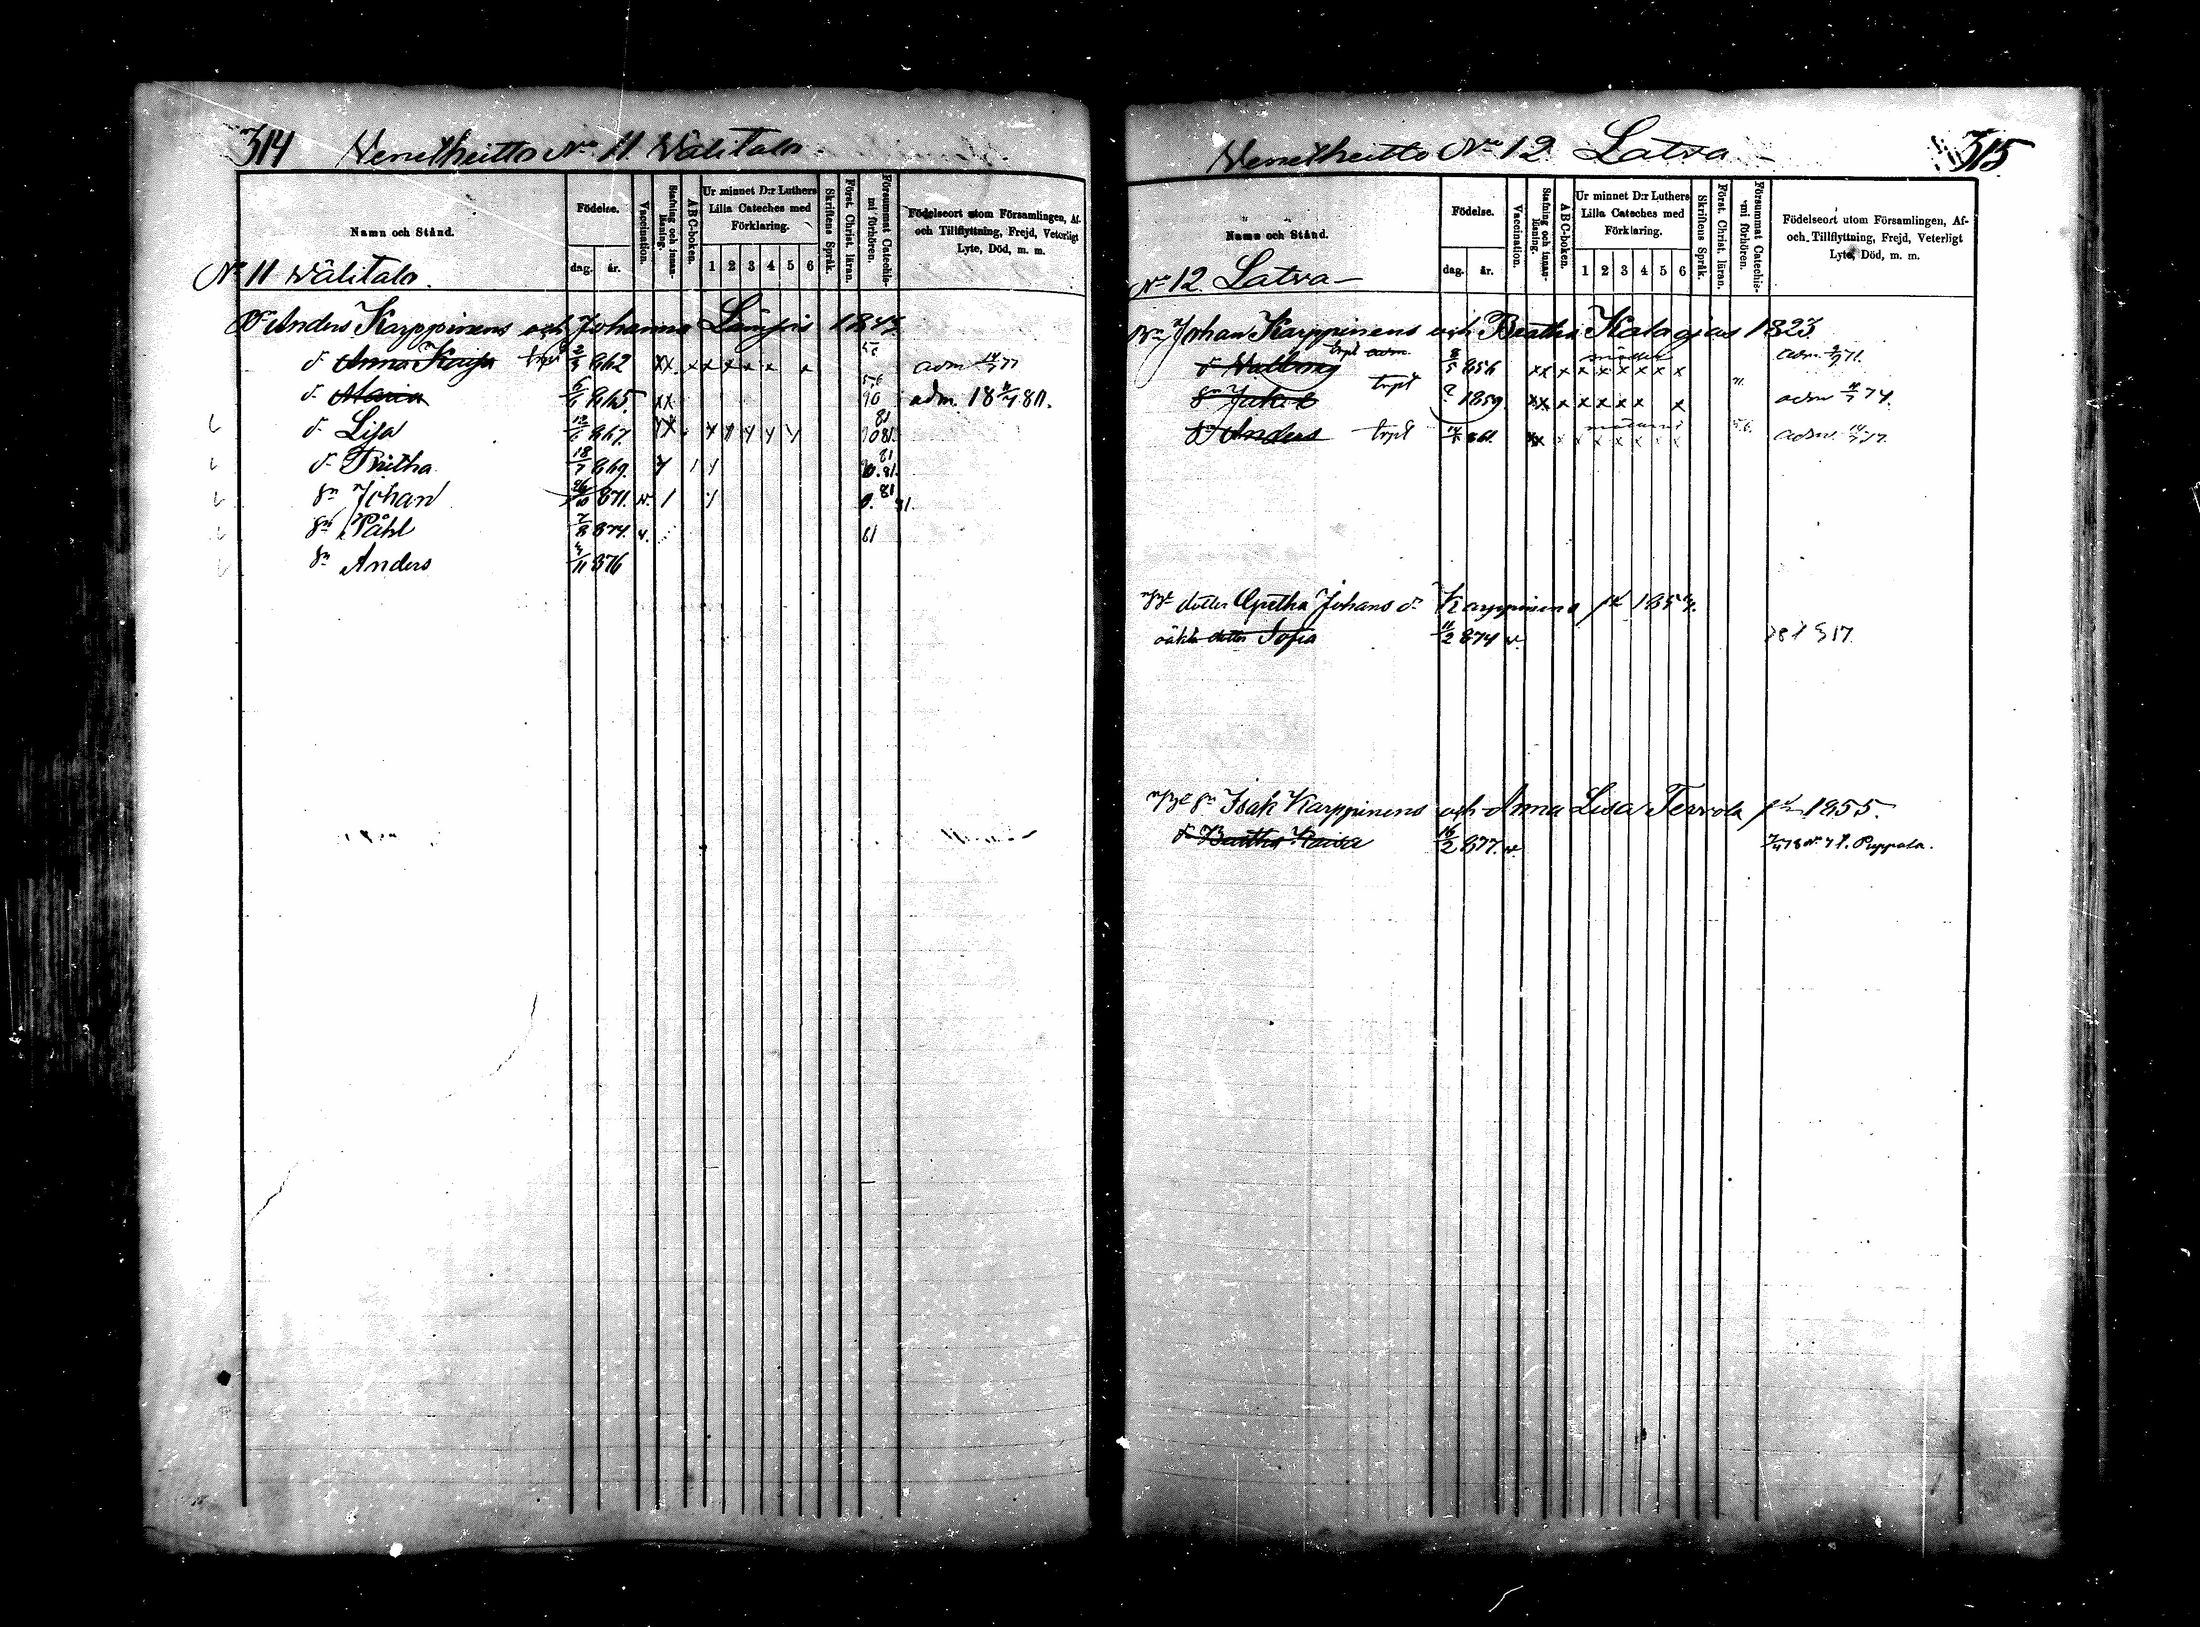 314 Venetheitto No 11 Wälitalo.
Namn och Stånd.
Födelse.
dag. år.
Vaccination.
Stafning och innan-läsning.
ABC-boken.
Ur minnet D:r Luthers Lilla Cateches med Förklaring.
1 2 3 4 5 6
Skriftens Språk.
Först. Christ. läran.
Försummat Catechis-mi förhören.
Födelseort utom Församlingen, Af- och Tillflyttning, Frejd, Veterligt Lyte, Död, m. m.
No 11 Wälitalo.
Anders Karppinens och Johanna 
d. Anna Kaisa 862 xx x x x x x x adm 77
d. Maria 6/6 865. xx 90 adm. 18 80.
d. Lisa 867. xx 81
d. Britha 18/7 869. 81
sn Johan 26/10 871. v. 81
sn Påhl 7/8 874. v. 81
sn Anders 876
Venetheitto No 12 Latva 315
Namn och Stånd.
Födelse.
dag. år.
Vaccination.
Stafning och innan-läsning.
ABC-boken.
Ur minnet D:r Luthers Lilla Cateches med Förklaring.
1 2 3 4 5 6
Skriftens Språk.
Först. Christ. läran.
Försummat Catechis-mi förhören.
Födelseort utom Församlingen, Af- och Tillflyttning, Frejd, Veterligt Lyte, Död, m. m.
No 12 Latva
Johan Karppinens och Beatha 1823
d Walborg 856 xx x x x x x x x adm 71.
sn Jakob 1859 xx x x x x x x adm 74.
Anders 861 xx x x x x x x x adm.
dotter Johans d. Karppinens 185
oäkta dotter Sofia 11/2 874 v.
sn Isak Karppinens och Anna Lisa Tervola 1855.
d Kaisa 16/2 877. v. Puppala.